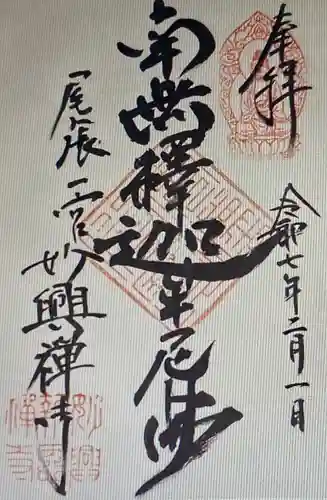 奉拝
令和七年二月一日
南無釋迦牟尼佛
尾張一宮妙興禅寺